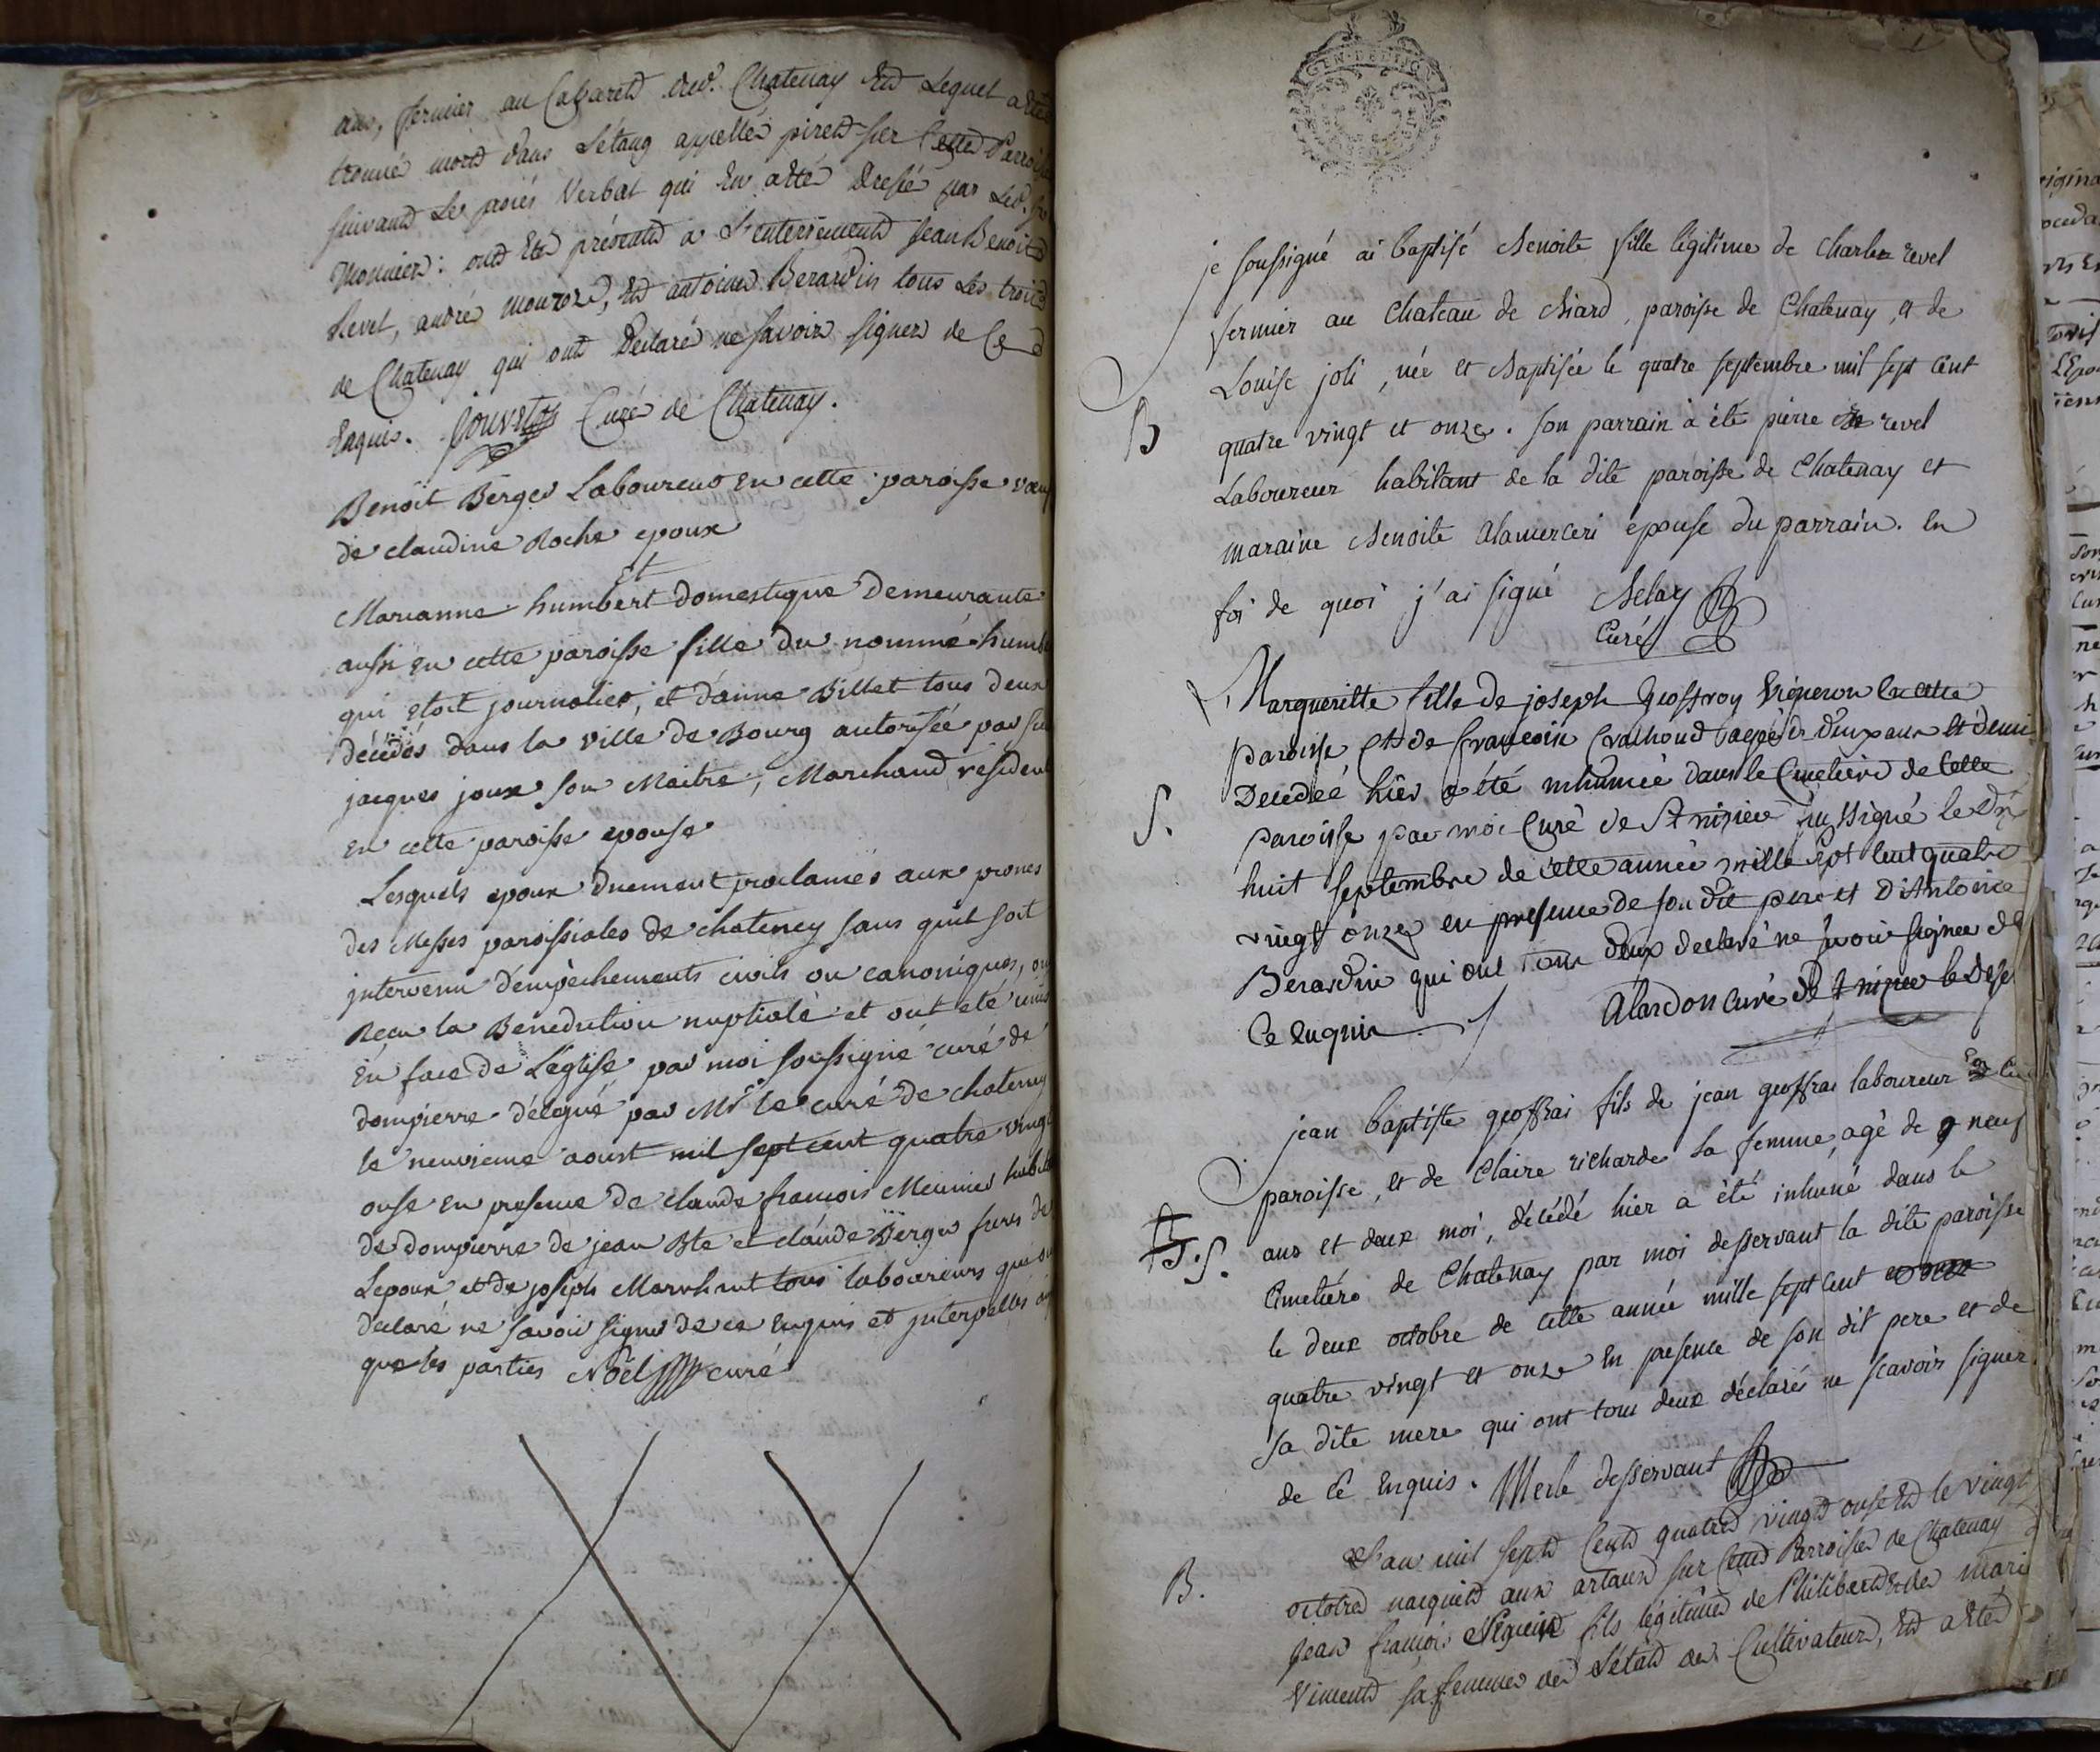 ans, fermier au Cabaret dud. Chatenay Et Lequel a été
trouvé mort dans L'étang appellé piret sur Cette Parroisse
suivant Le procés Verbal qui En a été Dressé par Led.
Monnier: ont Eté présents a L'enterrement Jean Benoit
Revel, andré mouroz, Et antoine Berardin tous Les trois
de Chatenay qui ont Déclaré ne savoir signer de Ce
Enquis. Jouvet Curé de Chatenay.
Benoit Berger Laboureur en cette paroisse veuf
de claudine Roche epoux
Et
Marianne humbert Domestique Demeurante
aussi en cette paroisse fille du nommé humbert
qui etoit journalier, et d'anne Billet tous deux
décédés dans la ville de Bourg autorisée par
jacques joux son Maitre, Marchand résident
en cette paroisse epouse
Lesquels epoux duement proclamés aux prones
des Messes paroissiales de chateney sans quil soit
intervenu d'empêchements civils ou canoniques, ont
Recu la Benediction nuptiale et ont eté unis
En face de L'église par moi soussigné curé de
dompierre délégué par Mr le curé de chateney
le neuvieme aoust mil sept cent quatre vingt
onse en presence de claude francois Meunier
de dompierre de jean Bte et claude Berger freres de
Lepoux et de joseph Marechant tous laboureurs qui ont
declaré ne savoir signer de ce enquis et interpellés
que les parties Noël curé
GEN. DE DIJON
je soussigné ai baptisé Benoite fille légitime de Charles revel
fermier au Chateau de Riard, paroisse de Chatenay, et de
Louise joli, née et Baptisée le quatre septembre mil sept cent
B quatre vingt et onze. son parrain à été pierre revel
Laboureur habitant de la dite paroisse de Chatenay et
maraine Benoite Alamerceri epouse du parrain. En
foi de quoi j'ai signé Belay
Curé
Margueritte fille de joseph Geoffroy Vigneron En cette
paroisse, Et de francoise Crachoud agée de deux ans et demi
S. Decedeé hier a été inhumée dans le Cimetiere de Cette
paroisse par moi Curé de St nizier soussigné le Dix
huit septembre de cette année mille sept cent quatre
vingt onze en presence de son dit pere et D'Antoine
Berardin qui ont tous deux declaré ne savoir signer de
Ce enquis Alardon curé de St nizier le desert
jean baptiste geoffrai fils de jean geoffrai laboureur en cette
paroisse, et de Claire richarde sa femme, agé de neuf
S. ans et deux moi, décédé hier a été inhumé dans le
Cimetiére de Chatenay par moi desservant la dite paroisse
le deux octobre de cette année mille sept cent
quatre vingt et onze En presence de son dit pere et de
sa dite mere qui ont tous deux déclarés ne scavoir signer
de cé enquis. Merle desservant
B. L'an mil sept Cent quatre vingt onse Et le vingt
octobre naquit aux artaux sur Cette Parroisse de Chatenay
Jean françois fils légitime de Philibert Et de marie
Viment sa femme de L'état de Cultivateur, Et a été